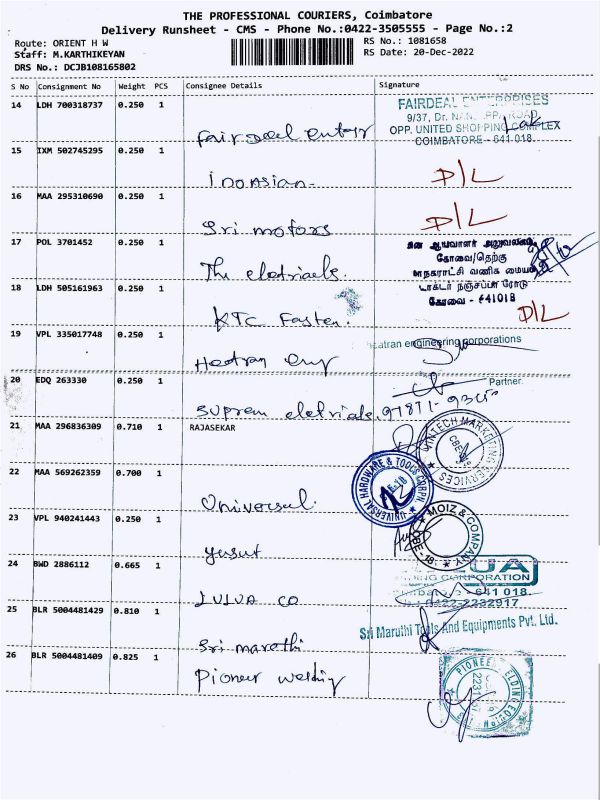 THE PROFESSIONAL COURIERS, Coimbatore
Delivery Runsheet - CMS - Phone No.:0422-3505555 - Page No.:2
Route: ORIENT H W
RS No.: 1081658
Staff: M.KARTHIKEYAN
RS Date: 20-Dec-2022
DRS No.: DCJB108165802
S No Consignment No Weight PCS Consignee Details Signature
14 LDH 700318737 0.250 1
FAIRDEAL ENTERPRISES
9/37, Dr.
OPP. UNITED SHOPPING COMPLEX
COIMBATORE - 641 018.
Fairdeal enter
15 IXM 502745295 0.250 1
Indoasian
D/L
16 MAA 295310690 0.250 1
Sri motors
D/L
17 POL 3701452 0.250 1
The eletricals.
ஆய்வாளர் அலுவலகம்
கோவை/தெற்கு
மாநகராட்சி வணிக மையம்
டாக்டர் நஞ்சப்பா ரோடு
கோவை - 641018
18 LDH 505161963 0.250 1
KTC Fasten.
D/L
19 VPL 335017748 0.250 1
Heatran engineering corporations
Heatran eng
Partner.
20 EDQ 263330 0.250 1
Suprem eletricals.
21 MAA 296836309 0.710 1 RAJASEKAR
VINTECH MARKETING SERVICES
22 MAA 569262359 0.700 1
UNIVERSAL HARDWARE & TOOLS CORPN.
Universal.
23 VPL 940241443 0.250 1
MOIZ & COMPANY
CBE-18.
Yusuf
24 BWD 2886112 0.665 1
CORPORATION
641 018.
LULUA CO
25 BLR 5004481429 0.810 1
Sri Maruthi Tools And Equipments Pvt. Ltd.
Sri maruthi
26 BLR 5004481409 0.825 1
Pioneer welding
PIONEER WELDING EQUIPMENT